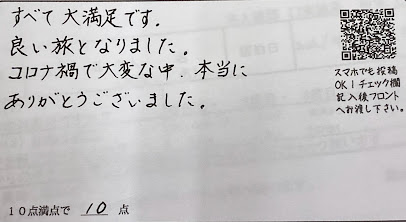 すべて大満足です。
良い旅となりました。
コロナ禍で大変な中、本当に
ありがとうございました。
スマホでも投稿
OK！チェック欄
記入後フロント
へお渡し下さい。
10点満点で 10 点